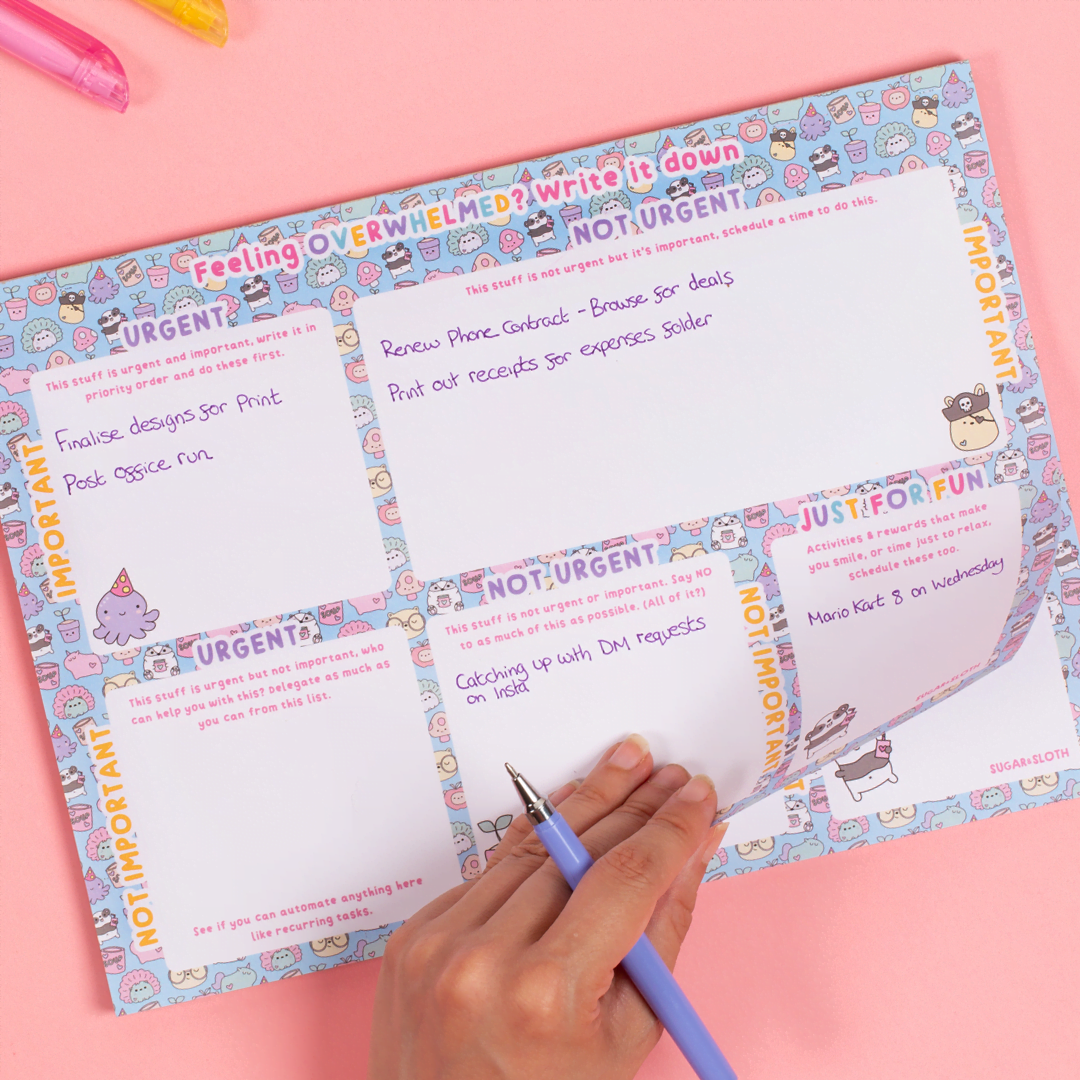 Feeling OVERWHELMED? Write it down
URGENT
This stuff is urgent and important, write it in
priority order and do these first.
Finalise designs for Print
Post office run
IMPORTANT
NOT URGENT
This stuff is not urgent but it's important, schedule a time to do this.
Renew Phone Contract - Browse for deals
Print out receipts for expenses folder
IMPORTANT
URGENT
This stuff is urgent but not important, who
can help you with this? Delegate as much as
you can from this list.
See if you can automate anything here
like recurring tasks.
NOT IMPORTANT
NOT URGENT
This stuff is not urgent or important. Say NO
to as much of this as possible. (All of it?)
Catching up with DM requests
on Insta
NOT IMPORTANT
JUST FOR FUN
Activities & rewards that make
you smile, or time just to relax,
schedule these too.
Mario Kart 8 on Wednesday
SUGAR&SLOTH
SUGAR&SLOTH